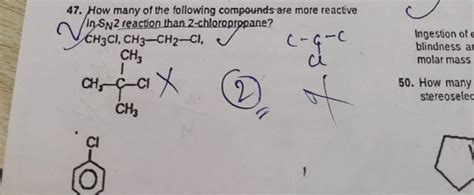 47. How many of the following compounds are more reactive
in SN2 reaction than 2-chloropropane?
CH3Cl, CH3—CH2—Cl,
C-C-C
Cl
CH3
CH3-C-Cl
CH3
2
Cl
Ingestion of
blindness
molar mass
50. How many
stereoselec